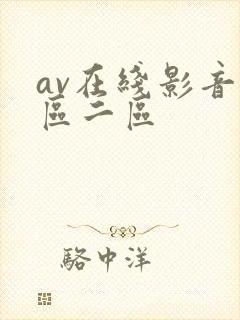 av在綫影音
區二區
駱中洋